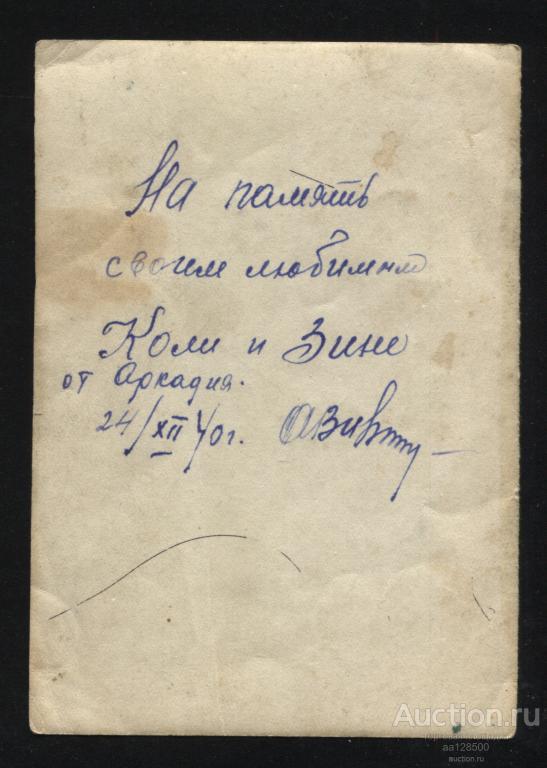 На память
своим любимым
Коли и Зине
от Аркадия.
24/XII 40г.
Auction.ru
aa128500
auction.ru